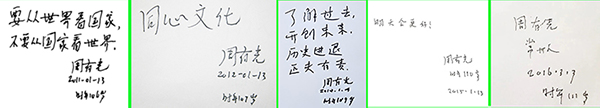 要从世界看国家,
不要从国家看世界.
周有光
2011-01-13
时年106岁
同心文化
周有光
2012-01-13
时年107岁
了解过去,
开创未来.
历史进退
匹夫有责.
周有光
时年105岁
明天会更好!
周有光
时年110岁
2015-1-13
周有光
常世人
2016.3.7
时年111岁